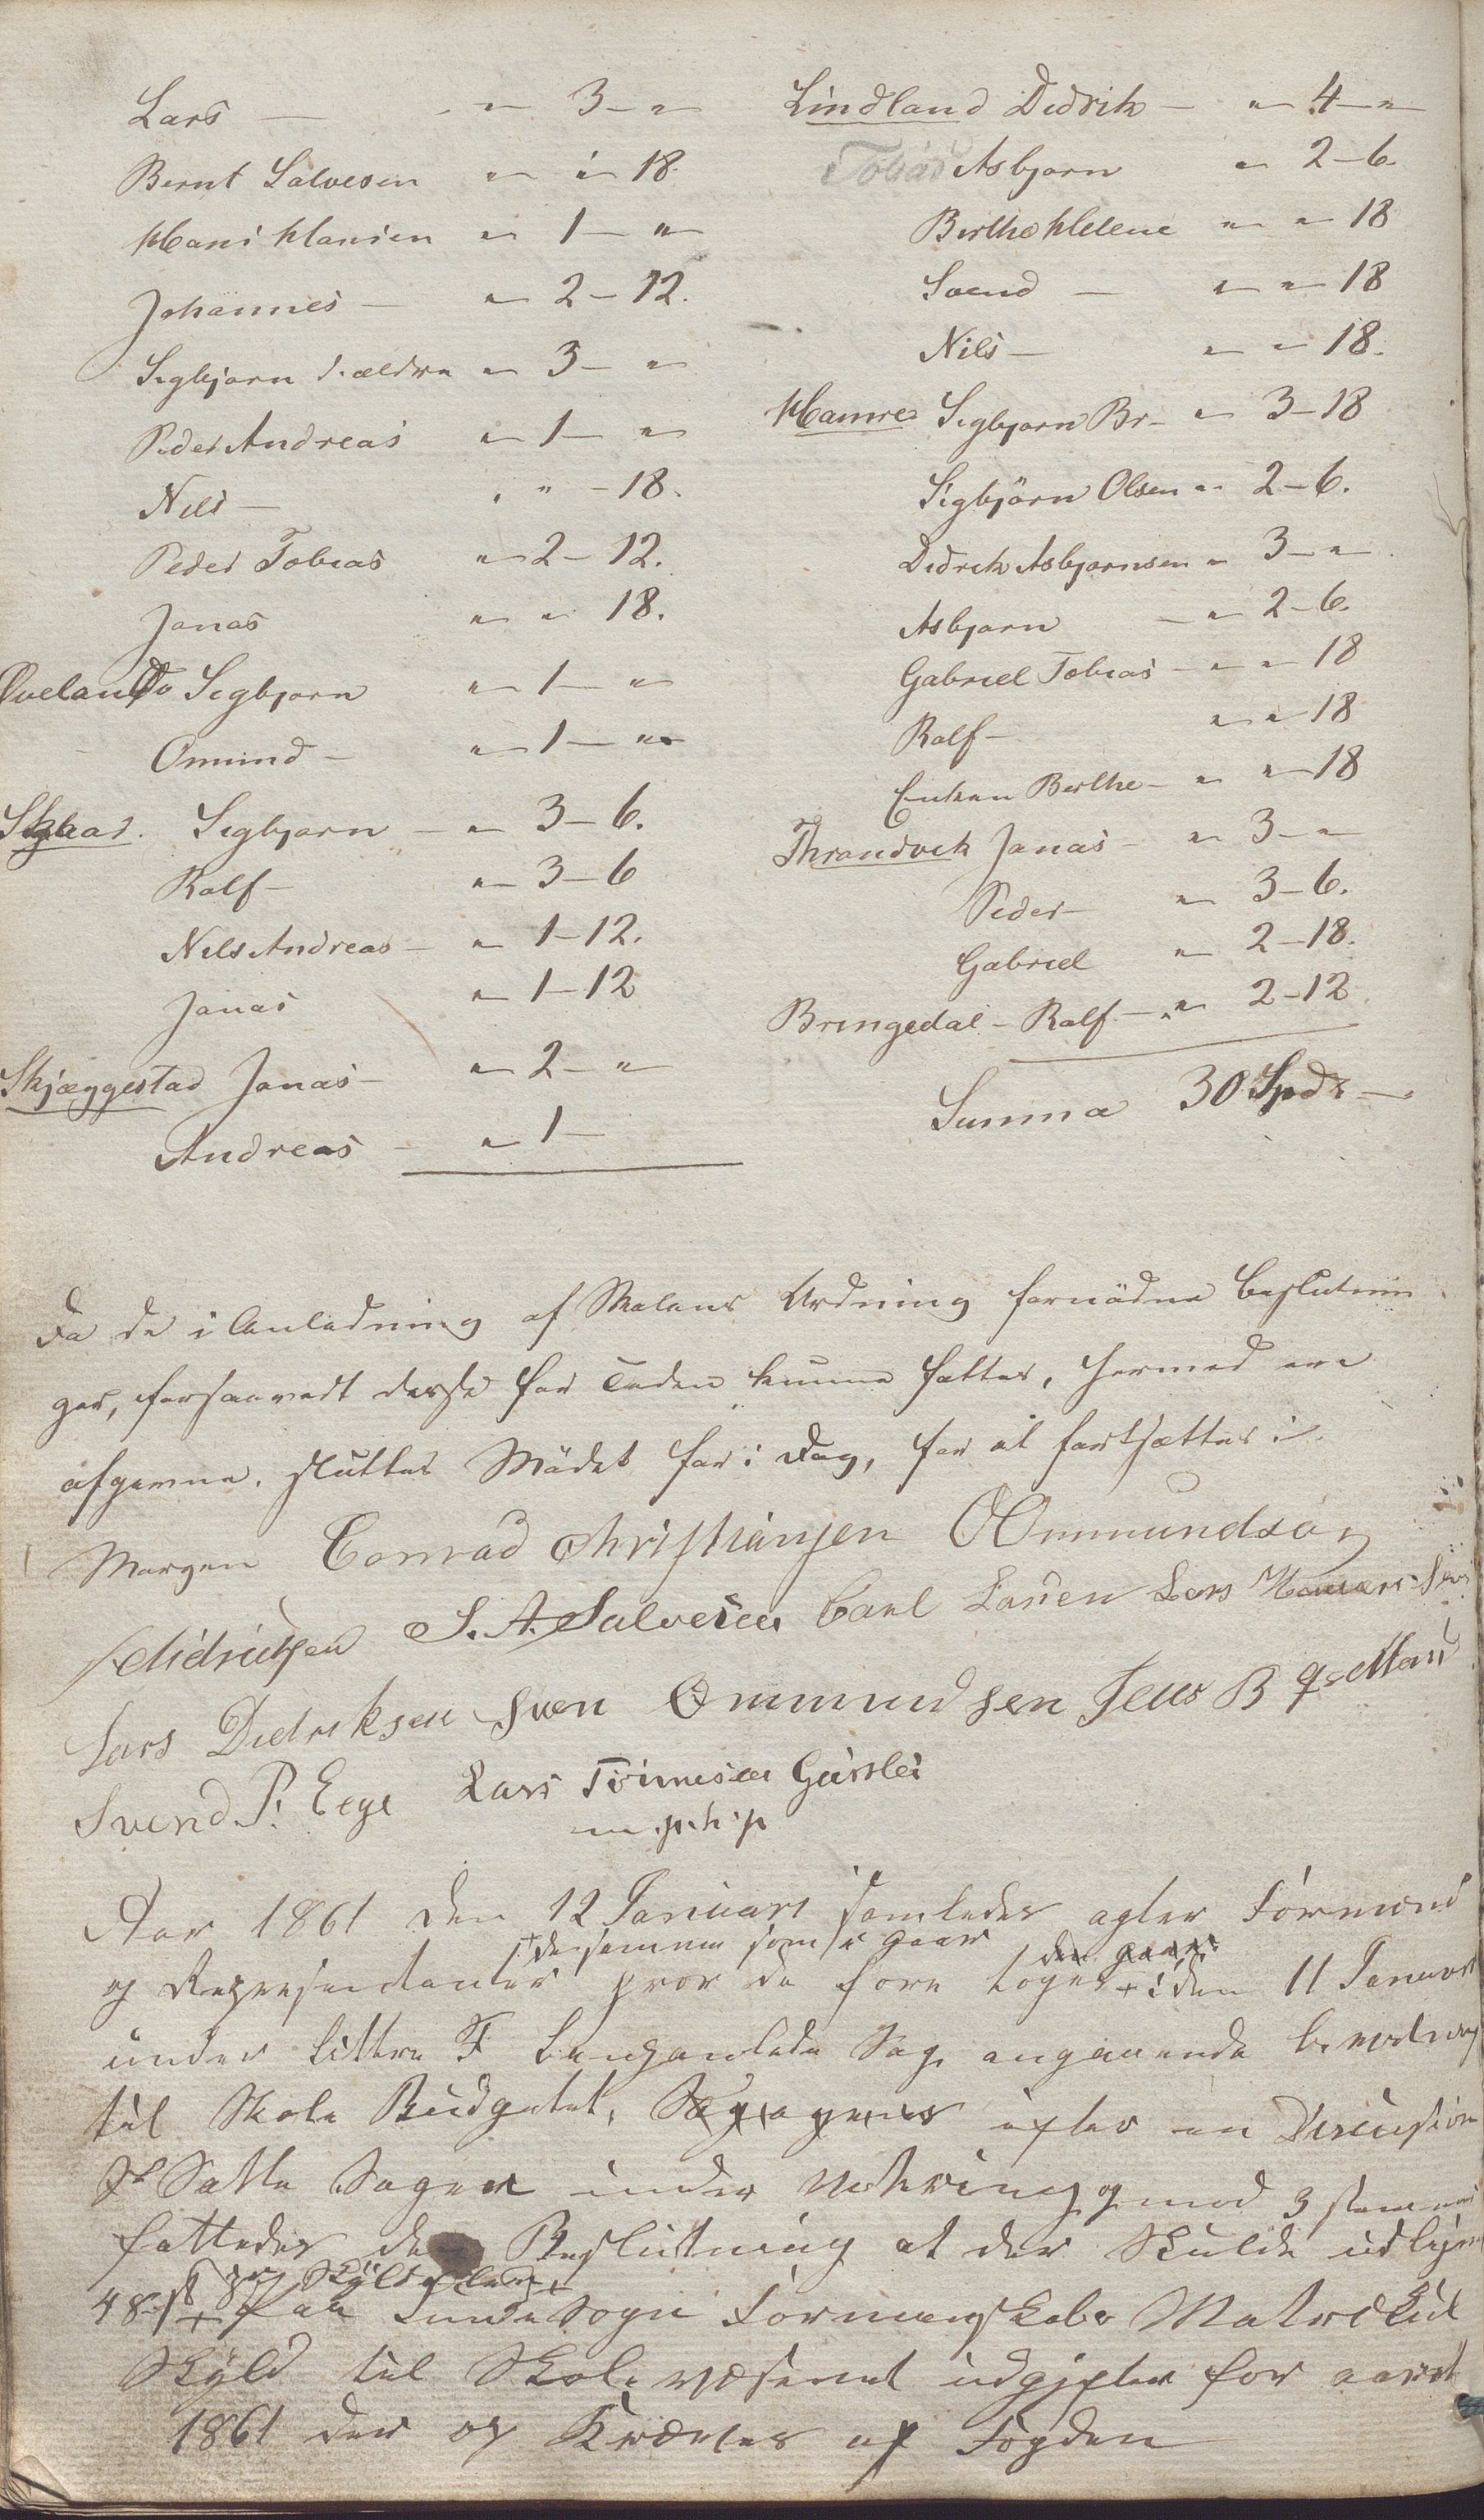 Lars — " 3 — "
Bernt Salvesen " " 18.
Hans Hansen " 1 — "
Johannes — " 2 — 12.
Sigbjørn d. ældre " 3 — "
Peder Andreas " 1 — "
Nils — " " — 18.
Peder Tobias " 2 — 12.
Jonas " " 18.
Øveland Sigbjørn " 1 — "
Omund — " 1 — "
Sigbjørn — " 3 — 6.
Rolf — " 3 — 6
Nils Andreas — " 1 — 12.
Jonas " 1 — 12
Skjæggestad Jonas — " 2 — "
Andreas — " 1 —
Lindland Didrik — " 4 — "
Tobias Asbjørn " 2 — 6.
Berthe Helene " " 18
Svend — " " 18
Nils — " " 18.
Hamre Sigbjørn Br — " 3 — 18
Sigbjörn Olsen " 2 — 6.
Didrik Asbjørnsen " 3 — "
Asbjørn — " 2 — 6.
Gabriel Tobias — " " 18
Rolf — " " 18
Enken Berthe — " " 18
Thrandvik Jonas — " 3 — "
Peder — " 3 — 6.
Gabriel " 2 — 18.
Bringedal — Rolf — " 2 — 12
Summa 30 Spdr —
Da de i Anledning af Skolens Ordning fornødne Beslutnin
ger, forsaavidt disse for Tiden kunne fattes, hermed ere
afgivne, sluttes Mödet for i Dag, for at fortsættes i
Morgen Conrad Christiansen O Ommundsen
Didriksen S. A. Salvesen Carl Larsen Lars
Lars Didriksen Sven Ommundsen Jens B
Svend P. Eege Lars Tönnesen
m. p. h. p
Aar 1861 den 12 Januari samledes atter Formænd
+ de samme som i Gaar
og Repræsentanter hvor da fore toges + i den 11 Januar
under Littra F behandlede Sag angaaende bevilning
til Skole Budgetet, efter en Discusion
Sattes Sagen under Votering og mod 3 stemmer
fattedes den Beslutning at der Skulde udlignes
pr Skylddaler
48 s + paa Sogn Formanskabs Matrikul
Skyld til Skolevæsenet udgifter for aaret
1861 der og Kræves af Fogden